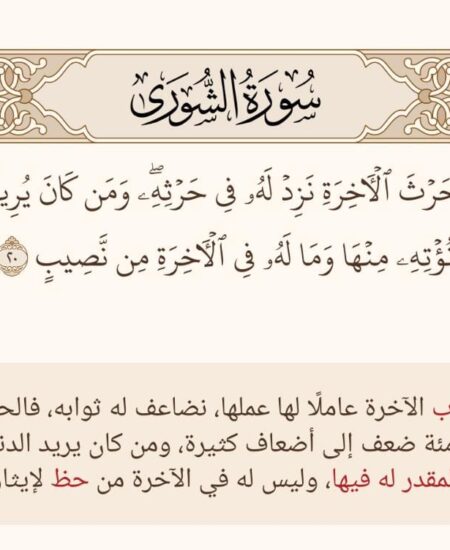 سُورَةُ الشُّورَىٰ
حَرْثَ ٱلْـَٔاخِرَةِ نَزِدْ لَهُۥ فِى حَرْثِهِۦۖ وَمَن كَانَ يُرِي
نُؤْتِهِۦ مِنْهَا وَمَا لَهُۥ فِى ٱلْـَٔاخِرَةِ مِن نَّصِيبٍ ٢٠
ب الآخرة عاملًا لها عملها، نضاعف له ثوابه، فالح
مئة ضعف إلى أضعاف كثيرة، ومن كان يريد الدن
لمقدر له فيها، وليس له في الآخرة من حظ لإيثار